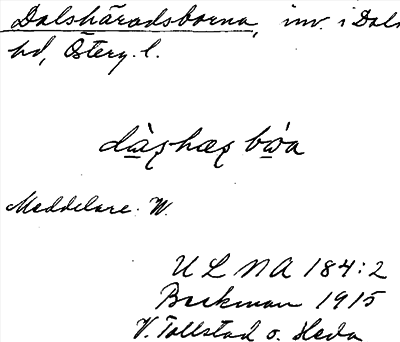 Dalshäradsborna, inv. i Dals
hd, Österg. l.
dàshæs bẃa
Meddelare: W.
ULMA 184:2
Beckman 1915
V. Tollstad o. Heda